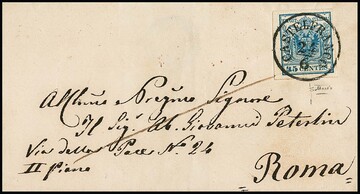 CASTELFRANCO
24
6
45 CENTES
All'Imo e Revmo Signore
Il Sig. Ab. Giovanni Peterlin
Via della Pace No. 24
II piano
Roma